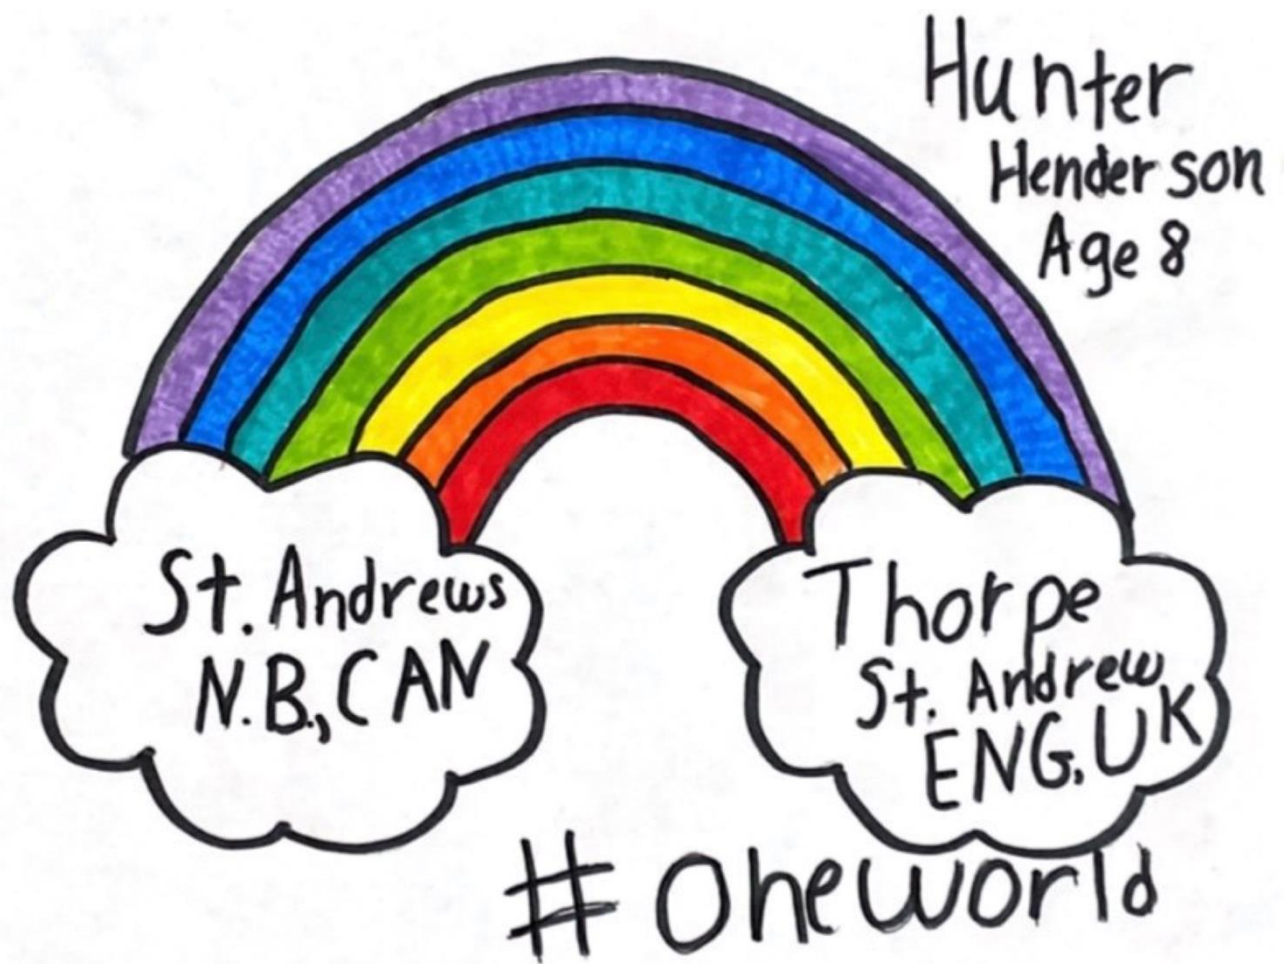 Hunter
Henderson
Age 8
St. Andrews
N.B., CAN
Thorpe
St. Andrew
ENG. UK
#oneworld